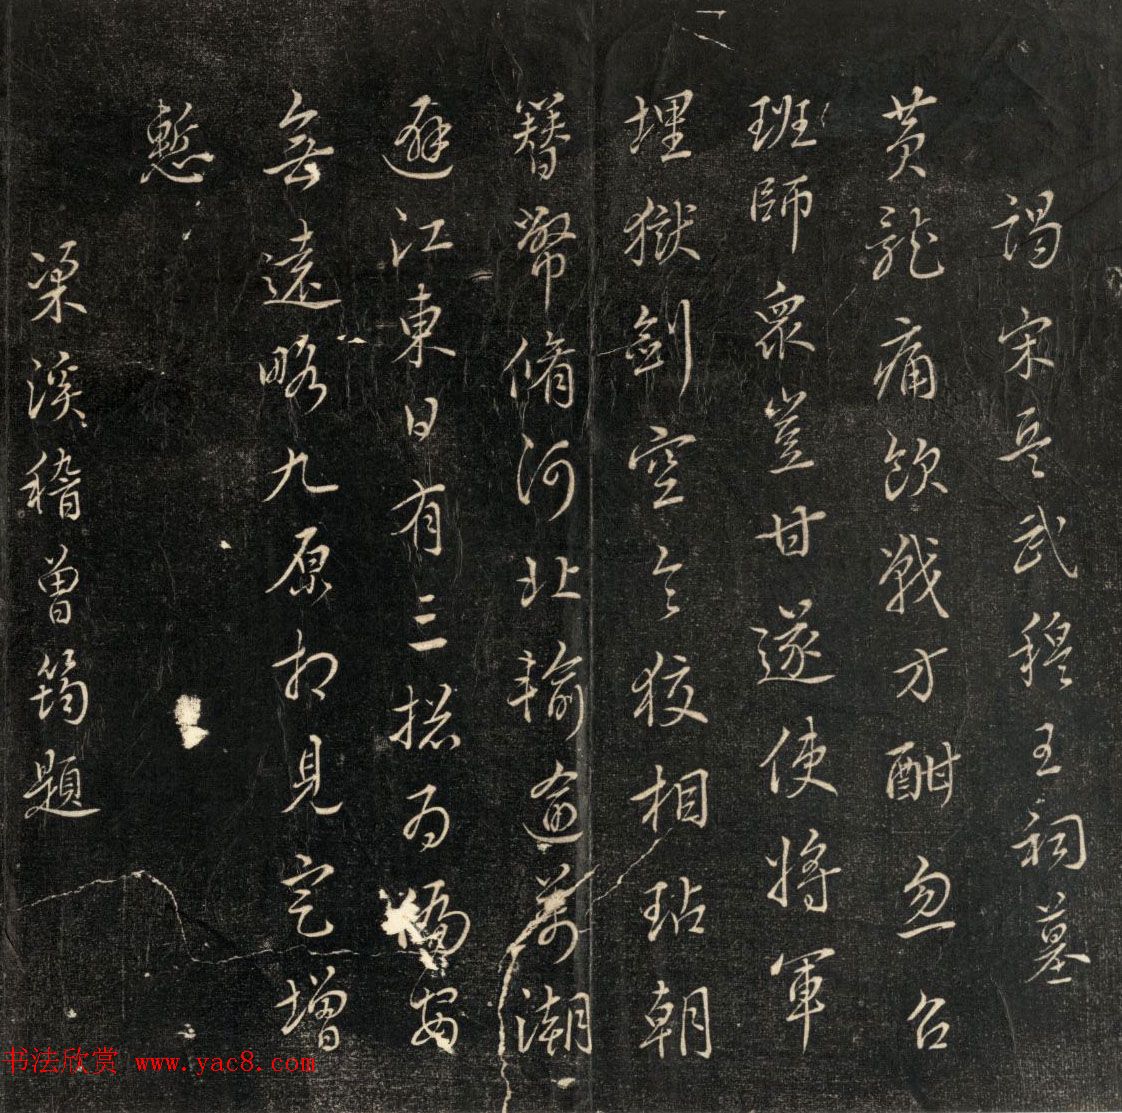 謁宋岳武穆王祠墓
黃龍痛飲戰方酣忽召
班師衆豈甘遂使將軍
埋獄劍空令狡相玷朝
簪幣脩河北輸逾萬潮
避江東日有三摠為偏安
無遠略九原相見定增
慙
梁溪稽曾筠題
书法欣赏 www.yac8.com